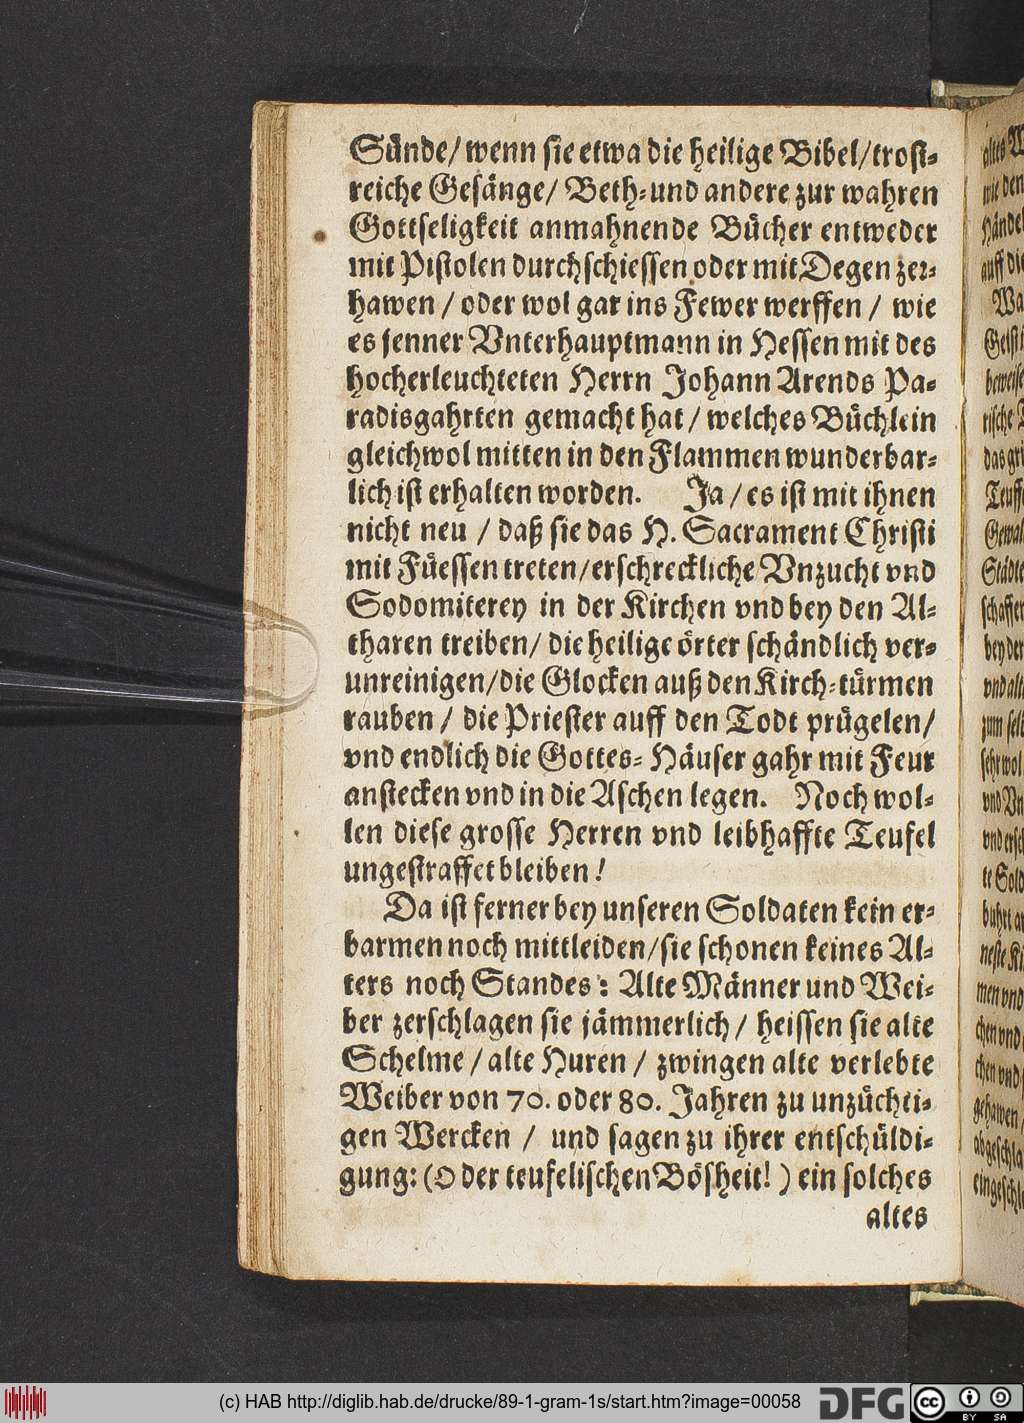 Sünde/ wenn sie etwa die heilige Bibel/ trost-
reiche Gesänge/ Beth- und andere zur wahren
Gottseligkeit anmahnende Bücher entweder
mit Pistolen durchschiessen oder mit Degen zer-
hawen / oder wol gar ins Fewer werffen / wie
es jenner Vnterhauptmann in Hessen mit des
hocherleuchteten Herrn Johann Arends Pa-
radisgahrten gemacht hat / welches Büchlein
gleichwol mitten in den Flammen wunderbar-
lich ist erhalten worden. Ja / es ist mit ihnen
nicht neu / daß sie das H. Sacrament Christi
mit Füessen treten/ erschreckliche Vnzucht vnd
Sodomiterey in der Kirchen vnd bey den Al-
tharen treiben/ die heilige örter schändlich ver-
unreinigen/ die Glocken auß den Kirch-türmen
rauben / die Priester auff den Todt prügelen/
vnd endlich die Gottes-Häuser gahr mit Feur
anstecken vnd in die Aschen legen. Noch wol-
len diese grosse Herren vnd leibhaffte Teufel
ungestraffet bleiben!
Da ist ferner bey unseren Soldaten kein er-
barmen noch mittleiden/ sie schonen keines Al-
ters noch Standes: Alte Männer und Wei-
ber zerschlagen sie jämmerlich/ heissen sie alte
Schelme / alte Huren / zwingen alte verlebte
Weiber von 70. oder 80. Jahren zu unzüchti-
gen Wercken / und sagen zu ihrer entschüldi-
gung: (O der teufelischen Bösheit!) ein solches
altes
(c) HAB http://diglib.hab.de/drucke/89-1-gram-1s/start.htm?image=00058
DFG
cc BY SA